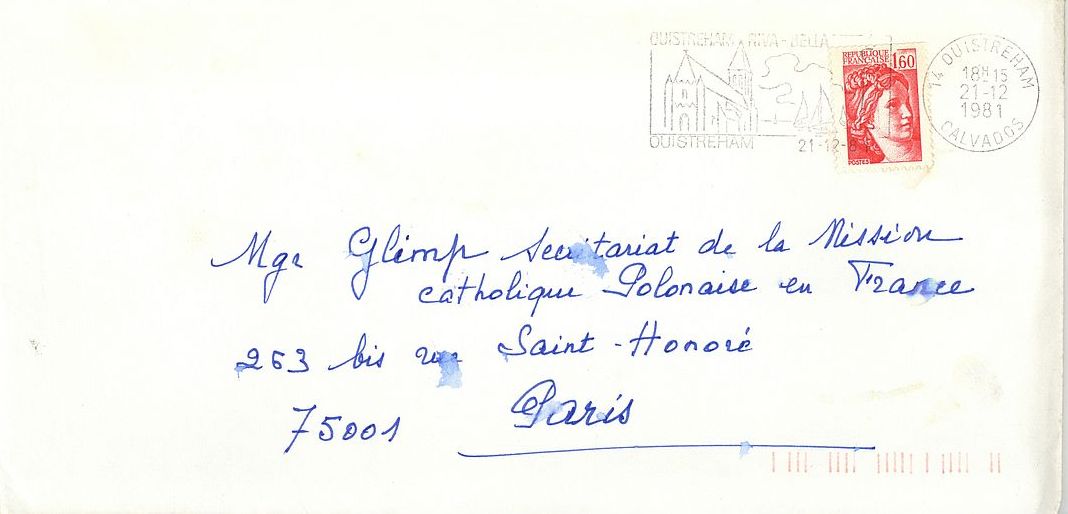 OUISTREHAM-RIVA-BELLA
OUISTREHAM
21-12-81
REPUBLIQUE
FRANÇAISE
1,60
POSTES
14 OUISTREHAM
18H15
21-12
1981
CALVADOS
Mgr Glemp Secretariat de la Mission
catholique Polonaise en France
263 bis rue Saint-Honoré
75001 Paris